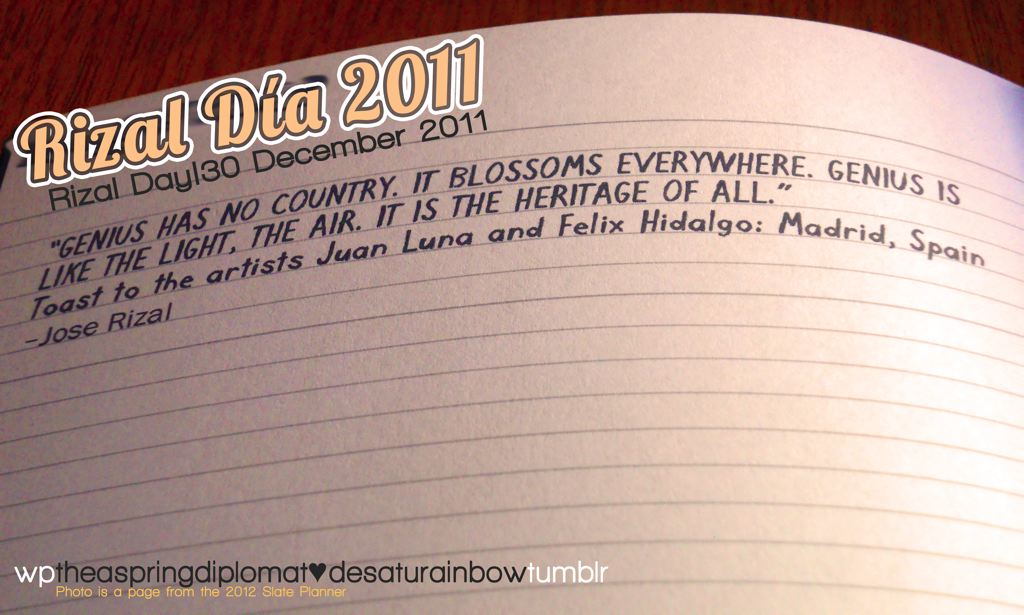 Rizal Día 2011
Rizal Day|30 December 2011
"GENIUS HAS NO COUNTRY. IT BLOSSOMS EVERYWHERE. GENIUS IS
LIKE THE LIGHT, THE AIR. IT IS THE HERITAGE OF ALL."
Toast to the artists Juan Luna and Felix Hidalgo: Madrid, Spain
-Jose Rizal
wptheaspringdiplomat♥desaturainbowtumblr
Photo is a page from the 2012 Slate Planner